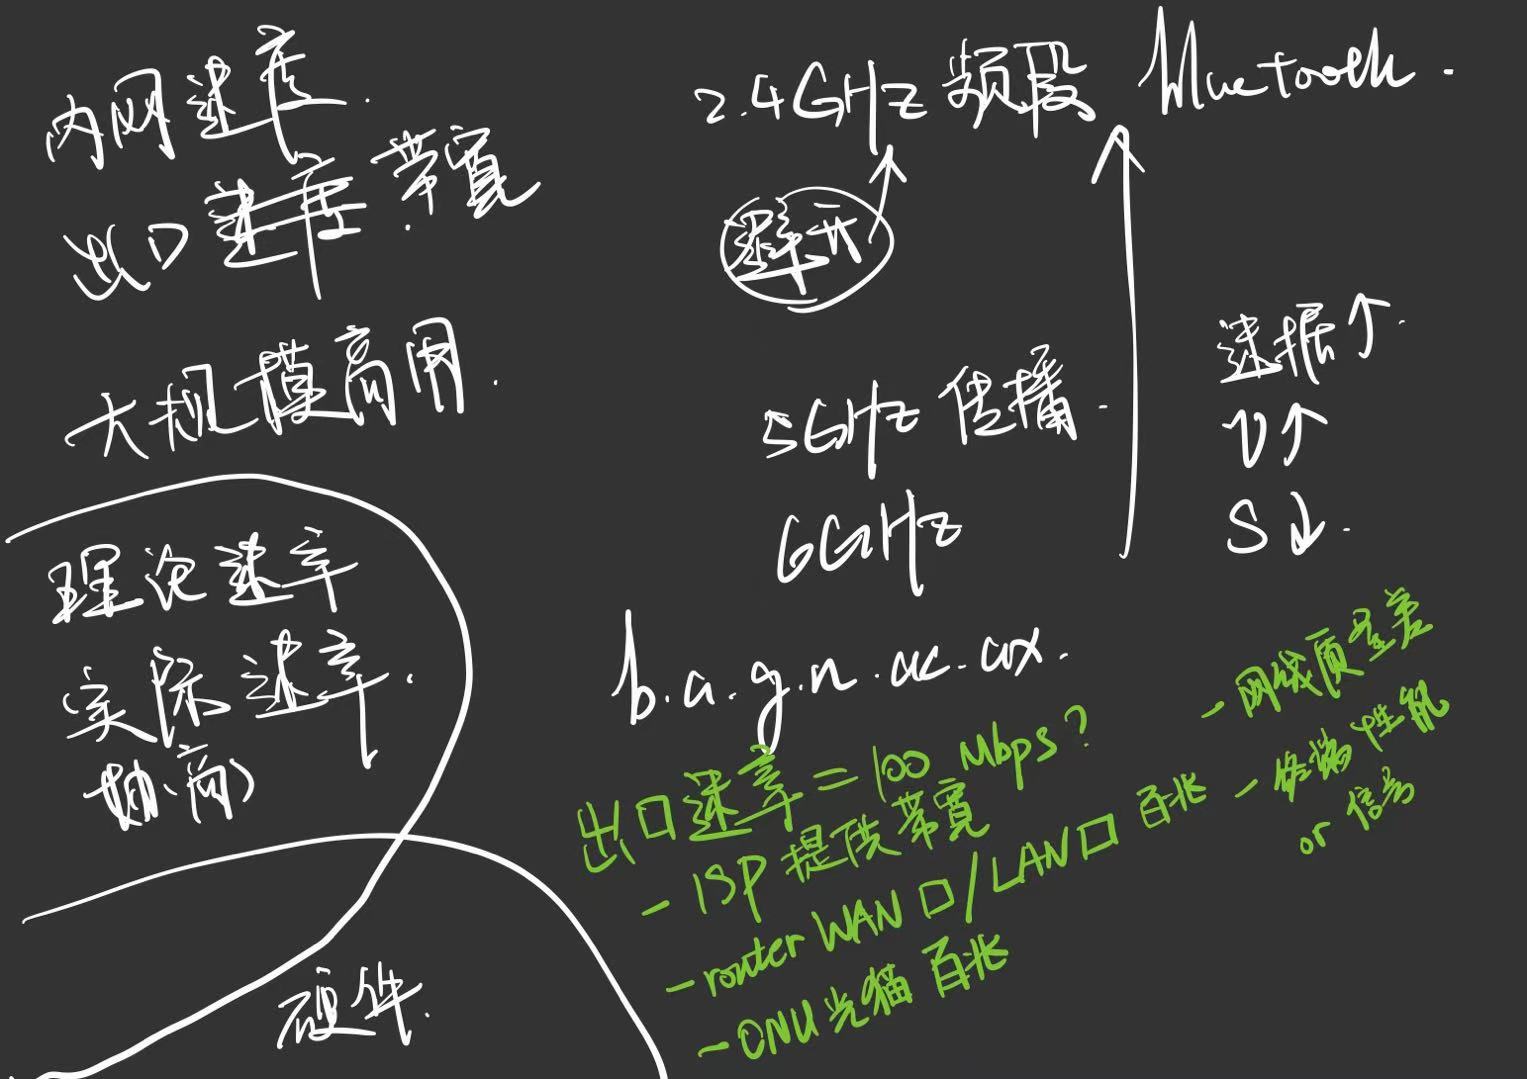 内网速度.
出口速度.带宽
大规模商用.
理论速率
实际速率.
协商
硬件.
2.4GHz 频段 bluetooth.
避开
5GHz 传播.
6GHz
速据↑.
V↑
S↓.
b.a.g.n.ac.ax.
出口速率=100 Mbps?
- ISP 提供带宽
- router WAN口/LAN口 百兆
- ONU光猫 百兆
- 网线质量差
- 终端性能
or 信号